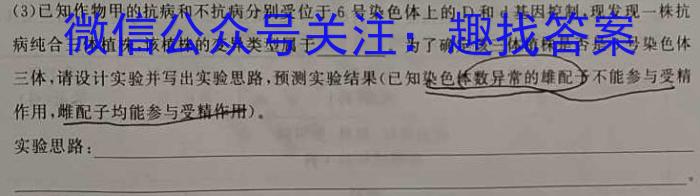 (3)已知作物甲的抗病和不抗病分别受位于6号染色体上的D和d基因控制,现发现一株抗
病纯合三体植株,该植株的变异类型属于 为了确定该三体植株是否是6号染色体
微信公众号关注:趣找答案
三体,请设计实验并写出实验思路,预测实验结果(已知染色体数异常的雄配子不能参与受精
作用,雌配子均能参与受精作用)。
实验思路: